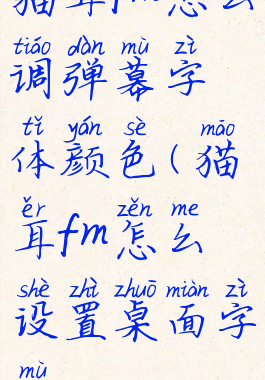 猫耳fm怎么
tiáo dàn mù zì
调弹幕字
tǐ yán sè māo
体颜色(猫
ěr zěn me
耳fm怎么
shè zhì zhuō miàn zì
设置桌面字
mù